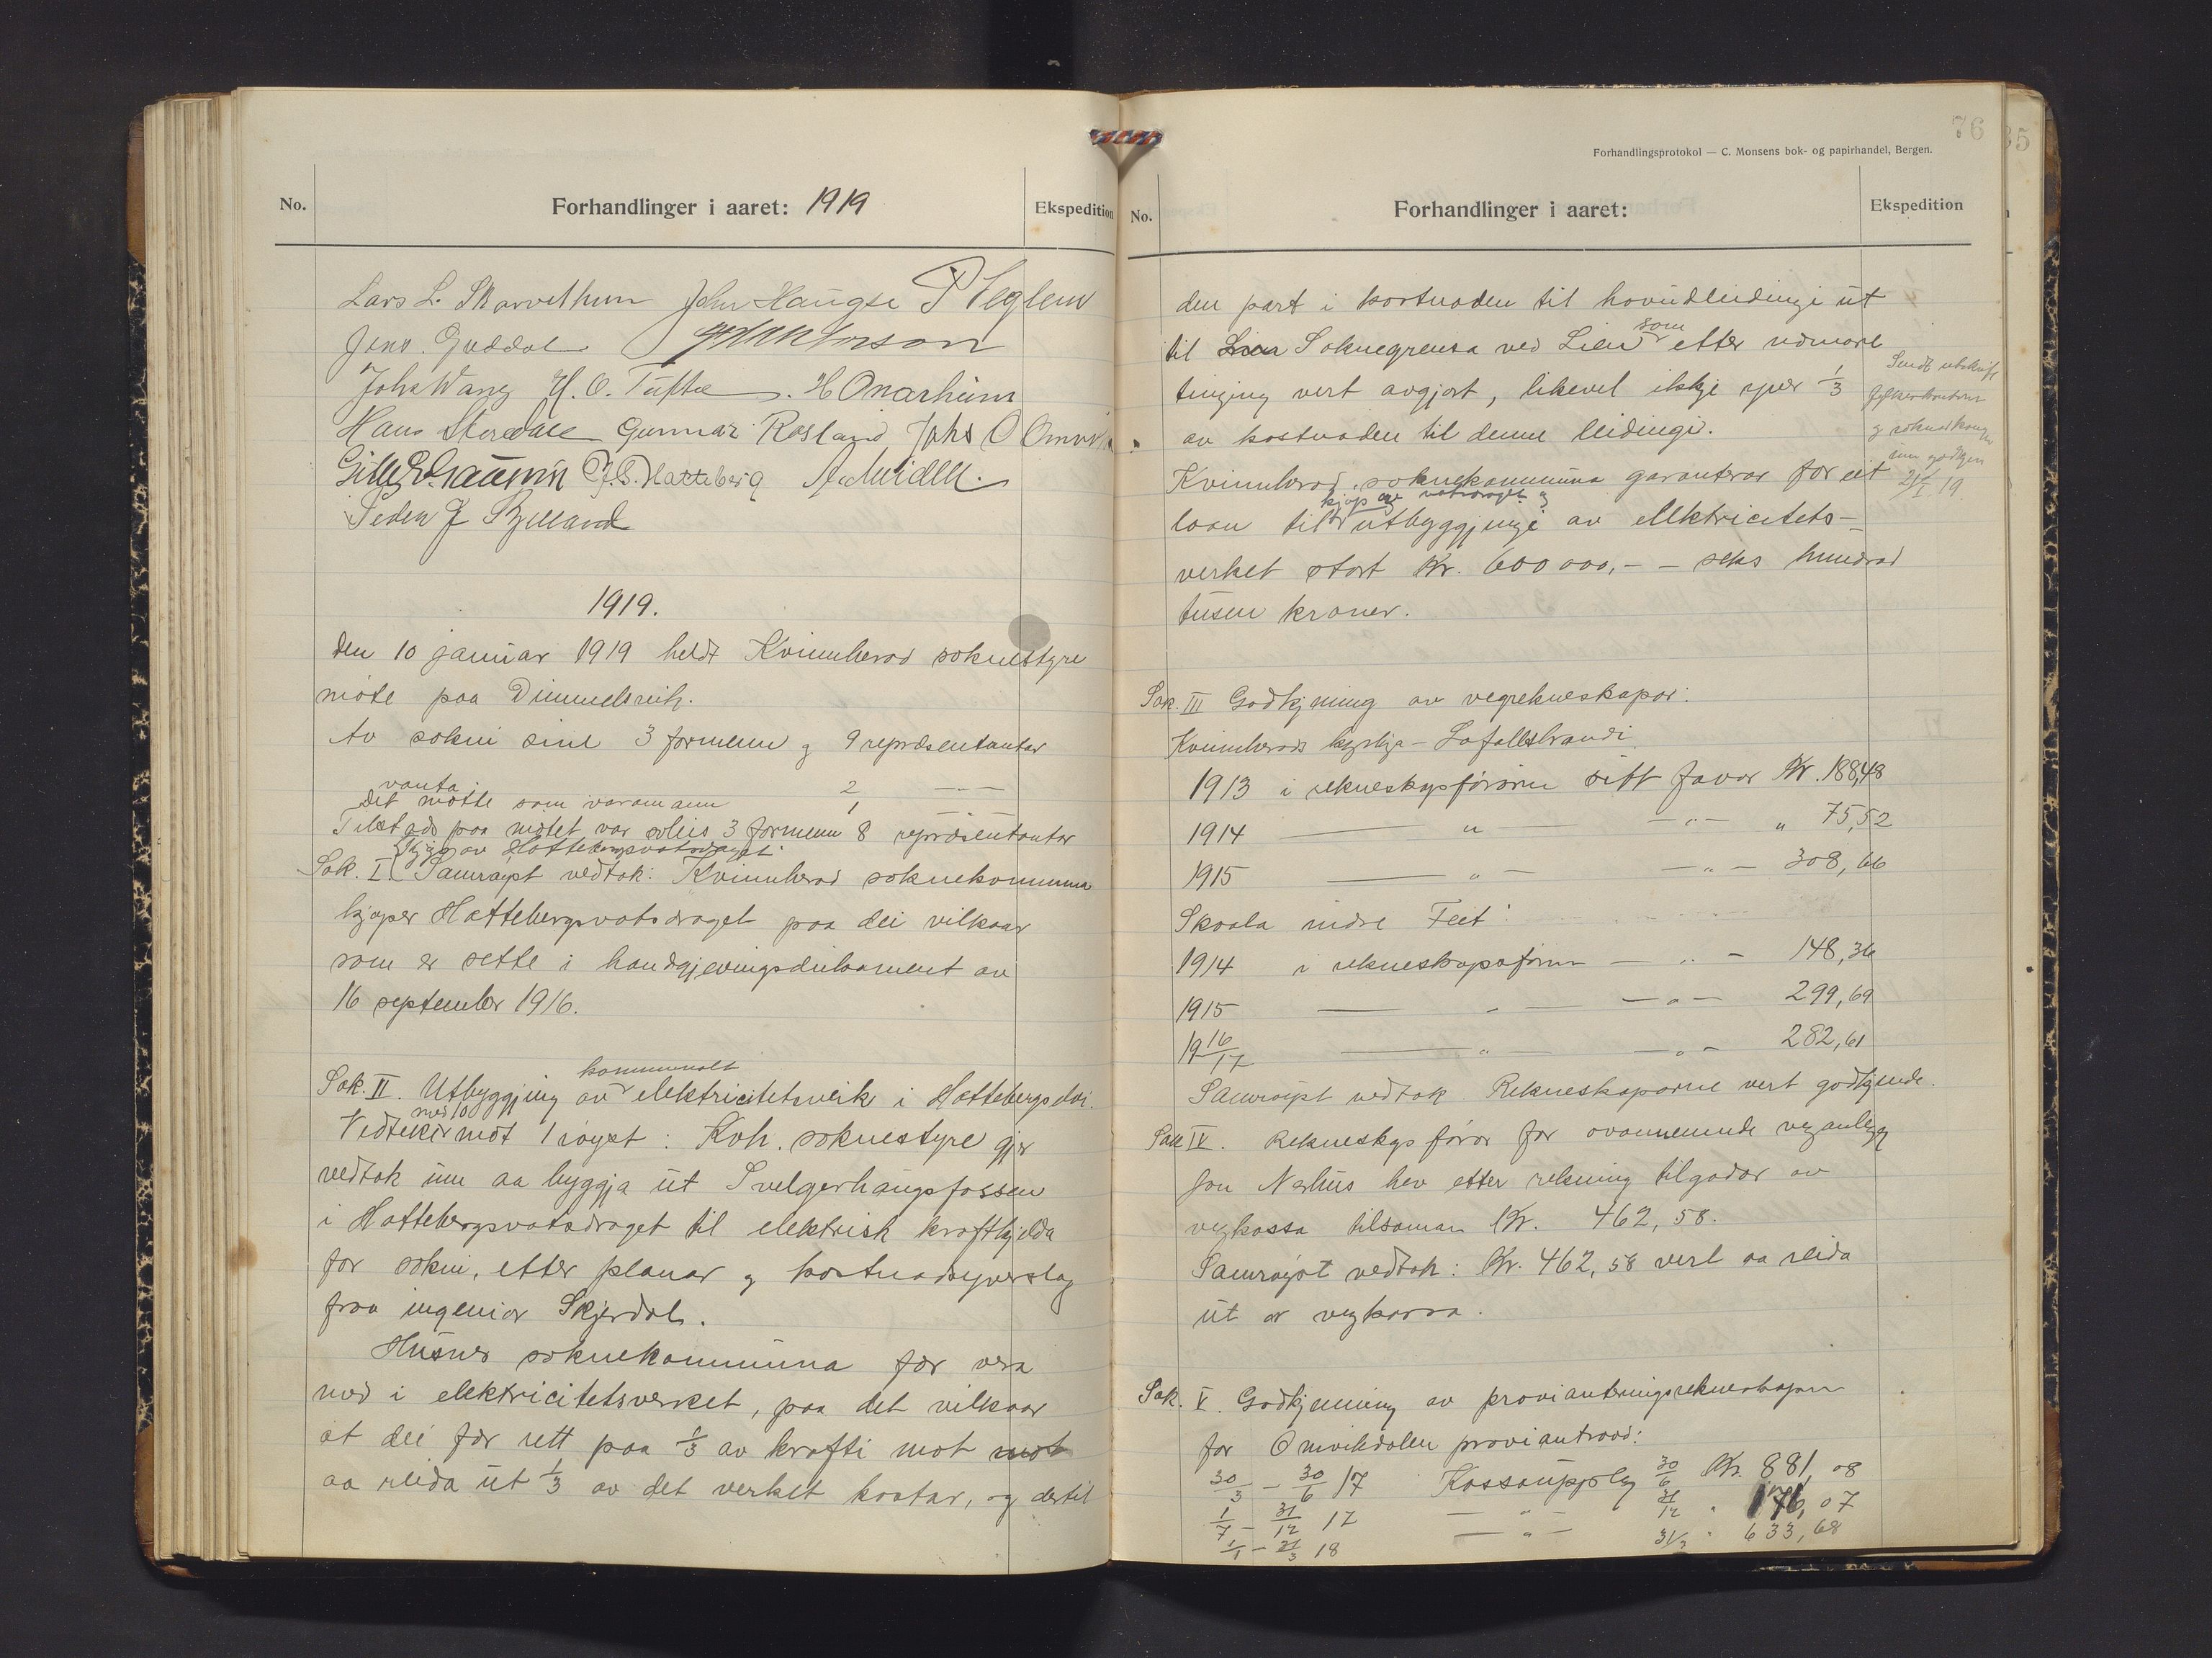 No.
Forhandlinger i aaret: 1919
Ekspedition
Lars L. Skarvethun John Haugse P Teglem
Jens. Guddal
Johs Wang H. O. Tufte H Onarheim
Hans Skeredale Gunnar Røsland Johs O Omvik
J. S. Hatteberg A. Meidell.
Peder J Bjelland
1919.
Den 10 januar 1919 heldt Kvinnherad soknestyre
møte paa Dimmelsvik.
Av sokni sine 3 formenn og 9 repræsentantar
vanta 2 — —
Det møtte som varamann 1 — —
Tilstads paa møtet var soleis 3 formenn 8 repræsentantar
Kjøp av Hattebergsvatsdraget.
Sak. I Samrøyst vedtok: Kvinnherad soknekommuna
kjøper Hattebergsvatsdraget paa dei vilkaar
som er sette i handgjevingsdokument av
16 september 1916.
kommunalt
Sak. II. Utbyggjing av elektricitetsverk i Hattebergselvi.
med 10
Vedteke mot 1 røyst: Kvh. soknestyre gjer
vedtak um aa byggja ut Svelgerhaugsfossen
i Hattebergsvatsdraget til elektrisk kraftkjelda
for sokni, etter planar og kostnadsyverslag
fraa ingeniør Skjerdal.
Husnes soknekommuna fær vera
med i elektricitetsverket, paa det vilkaar
at dei fær rett paa 1/3 av krafti mot mot
aa reida ut 1/3 av det verket kostar, og dertil
76
35
Forhandlingsprotokol — C. Monsens bok- og papirhandel, Bergen.
No.
Forhandlinger i aaret:
Ekspedition
den part i kostnaden til hovudleidingi ut
som
til Soknegrensa ved Lien etter nærmare
tinging vert avgjort, likevel ikkje yver 1/3
av kostnaden til denne leidingi.
Sendt utskrift
fylkeskontoret
og soknekommu
21/1 19
Kvinnherad soknekommuna garanterar for eit
kjøp av vatsdraget og
laan til utbyggjingi av elektricitets-
verket stort Kr. 600 000,- - seks hundrad
tusen kroner.
Sak. III Godkjenning av vegrekneskapar:
Kvinnherads kyrkja - Lofallstrandi
1913 i rekneskapsførarin sitt favør Kr. 188,48
1914 — " — — " — " 75,52
1915 — " — — " — 308,66
Skaala indre Feet:
1914 i rekneskapsførar — " — 148,36
1915 — " — — " — 299,69
19 16/17 — " — — " — 282,61
Samrøyst vedtok Rekneskaparne vert godkjende.
Sak IV. Rekneskapsførar for ovannemnde veganlegg
Jon Neshus hev etter rekning tilgodar av
vegkassa tilsaman Kr. 462,58.
Samrøyst vedtok: Kr. 462,58 vert aa reida
ut av vegkassa.
Sak. V. Godkjenning av provianteringsrekneskapen
for Omvikdalen proviantraad:
30/3 - 30/6 17 Kassaupplag 30/6 Kr. 881,08
1/7 - 31/12 17 — " — 31/12 " 176,07
1/1 - 31/3 18 — " — 31/3 " 633,68